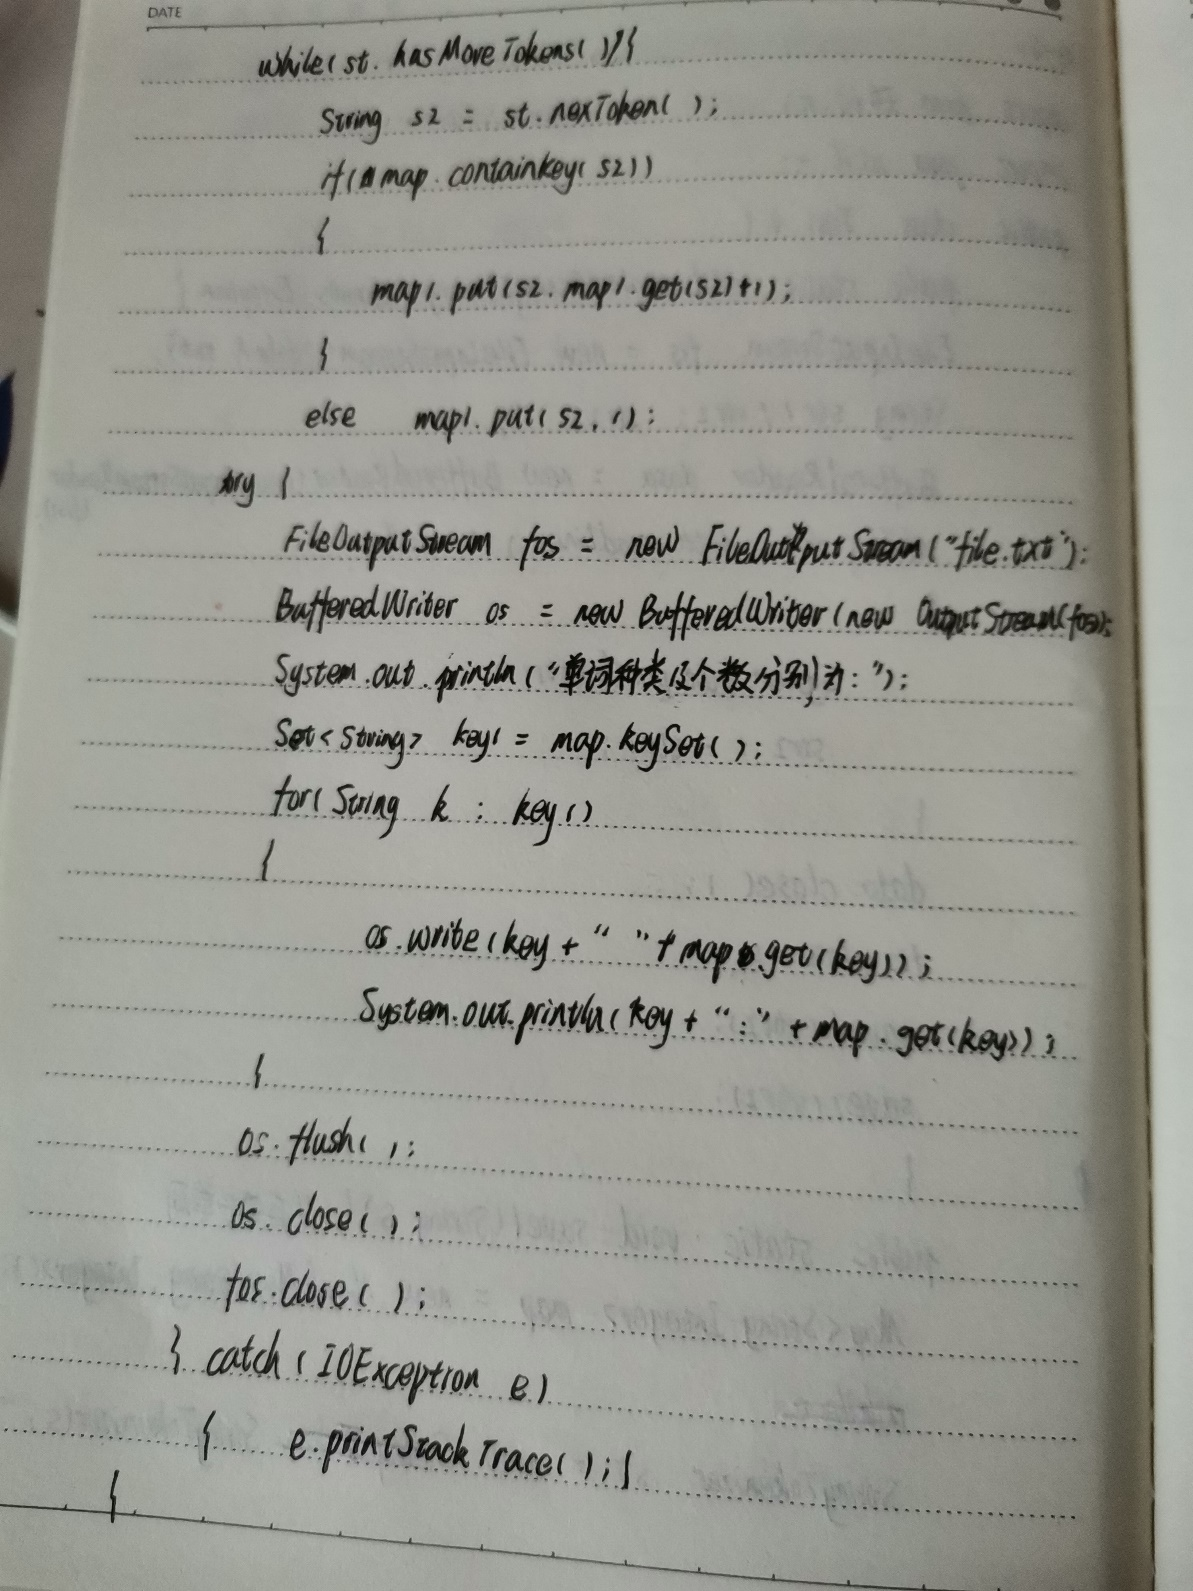 DATE
while(st.hasMoreTokens()){
String s2 = st.nexToken( );
if( map.containkey(s2))
{
map1.put(s2.map1.get(s2)+1);
}
else map1.put(s2,1);
try {
FileOutputStream fos = new FileOutputStream("file.txt");
BufferedWriter os = new BufferedWriter(new OutputStream(fos));
System.out.println("单词种类及个数分别为:");
Set<String> key1 = map.keySet( );
for(String k : key1)
{
os.write(key+" "+map.get(key));
System.out.println(key+":"+map.get(key));
}
os.flush( );
os.close( );
fos.close( );
} catch (IOException e)
{ e.printStackTrace( );}
}